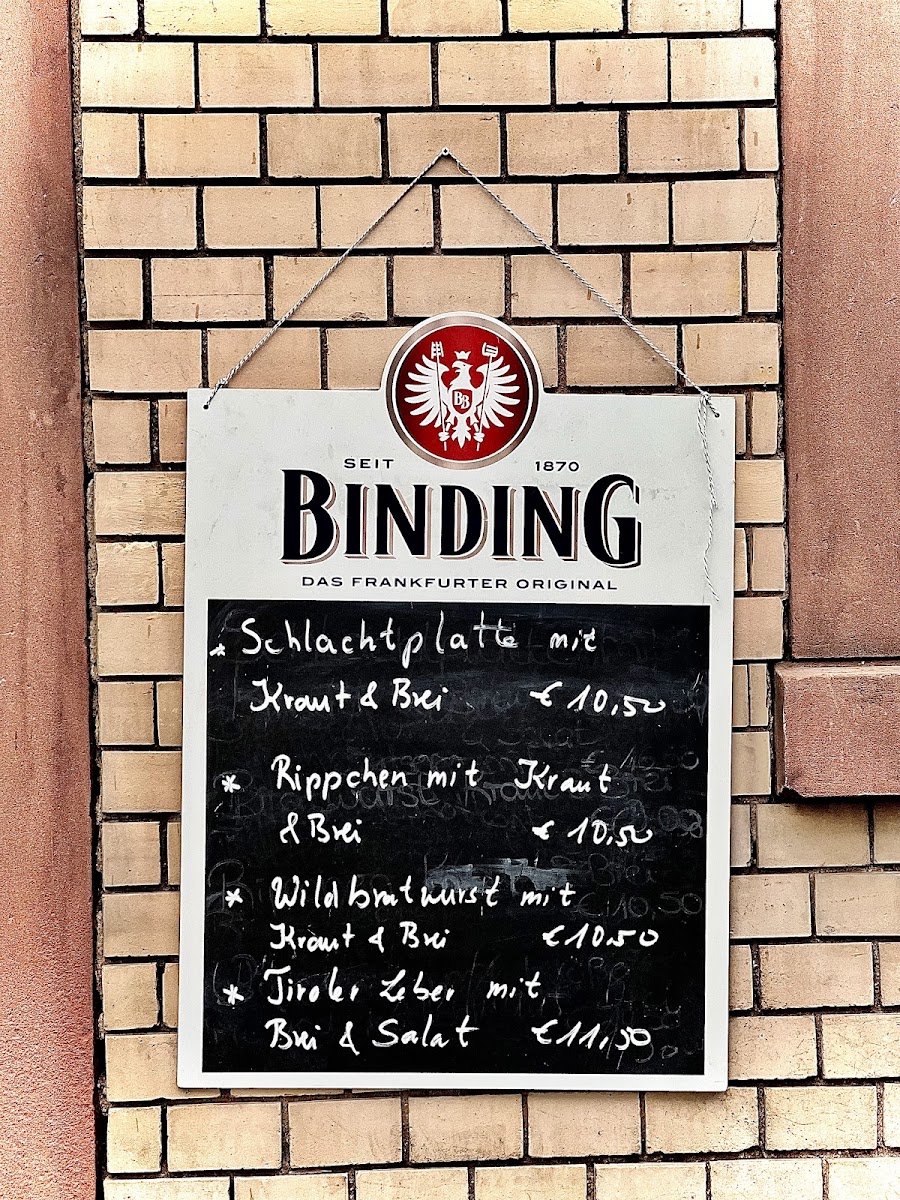 BB
SEIT 1870
BINDING
DAS FRANKFURTER ORIGINAL
* Schlachtplatte mit
Kraut & Brei € 10,50
* Rippchen mit Kraut
& Brei € 10,50
* Wildbratwurst mit
Kraut & Brei € 10,50
* Tiroler Leber mit
Brei & Salat € 11,50